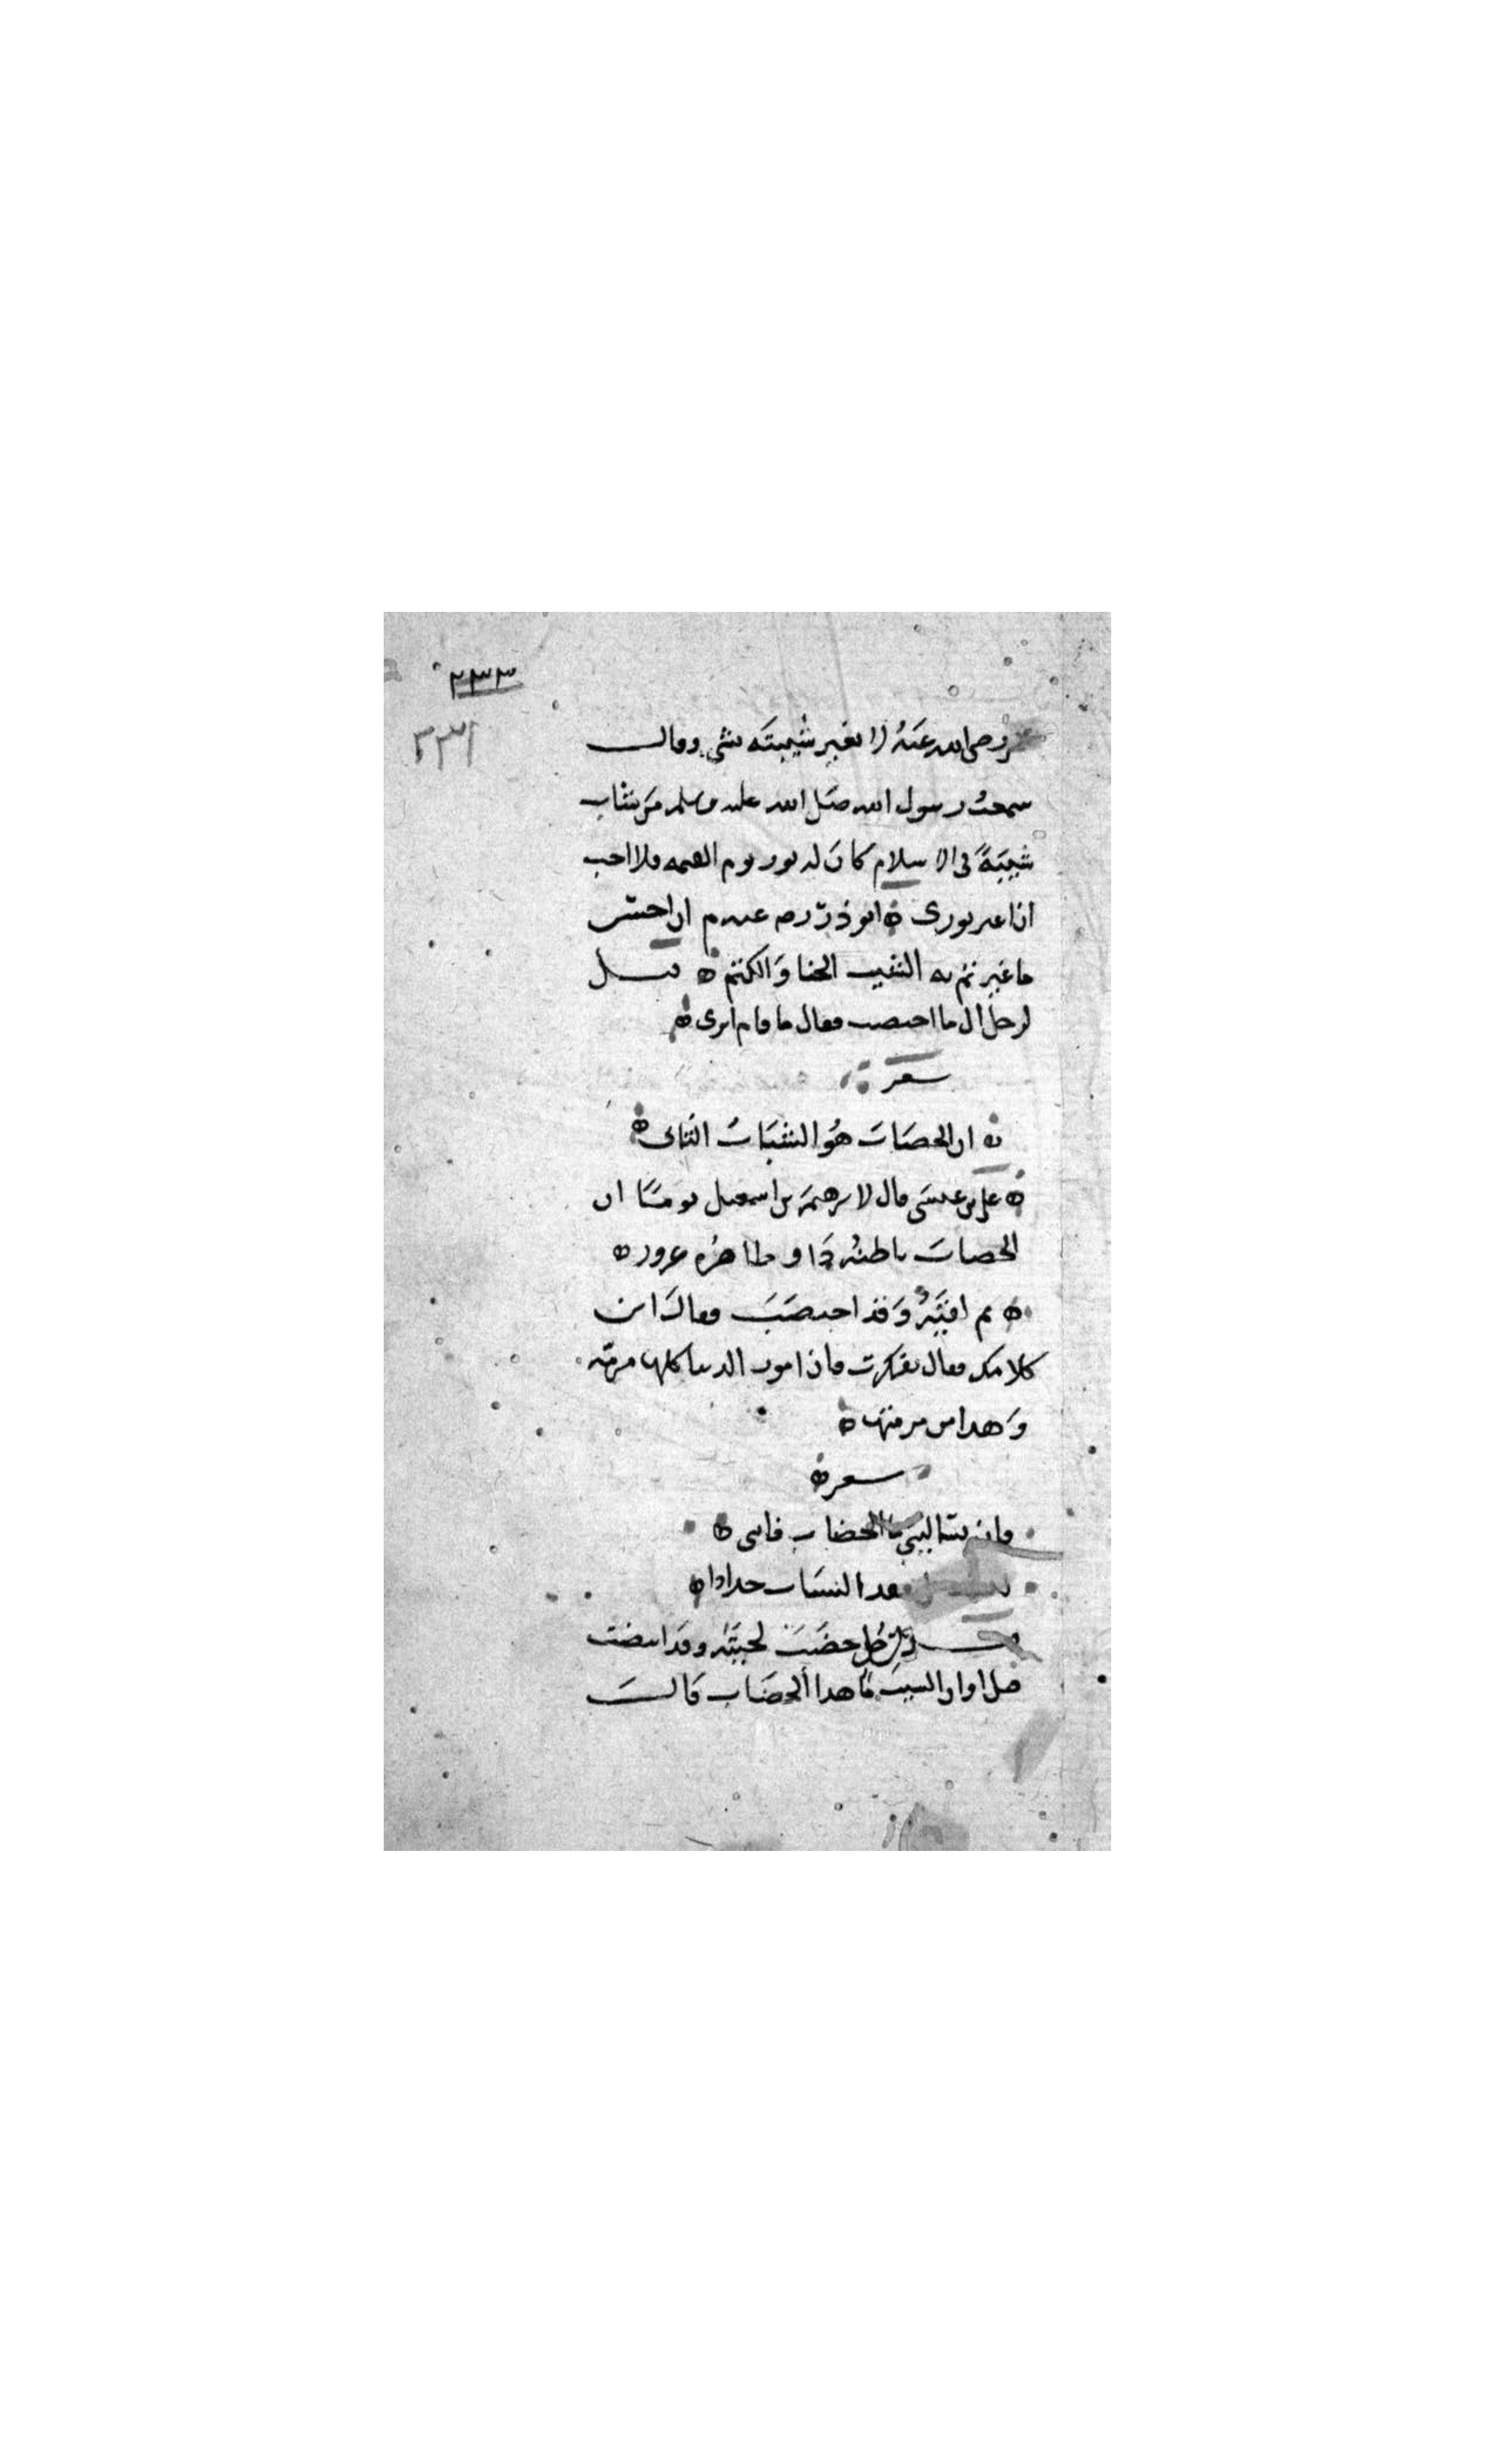 ٢٣٣
٢٣١
عمر رضي الله عنه لا يغير شيبته بشي وقال
سمعت رسول الله صلى الله عليه وسلم من شاب
شيبة في الاسلام كان له نور يوم القيمه فلا احب
ان اغير نوري ه ابو ذر رفعه ان احسن
ما غيرتم به الشيب الحنا والكتم ه قيل
لرجل ال ما اختضب فقال ما قام ايرى ه
شعر
ه ان الخضاب هو الشباب الثاني ه
ه علي بن عيسى قال لابرهيم بن اسمعيل يوما ان
الخضاب باطنه وظاهره غرور ه
ه ثم لقيته وقد اختضب فقال اين
كلامك فقال تفكرت فان امور الدنيا كلها مرمة
وهذا من مرمتها ه
شعر ه
فان تسأليني بالخضاب فاني ه
لبست فقد الشباب حدادا ه
خضب لحيته وقد ابيضت
قبل اوان الشيب ما هذا الخضاب قالت